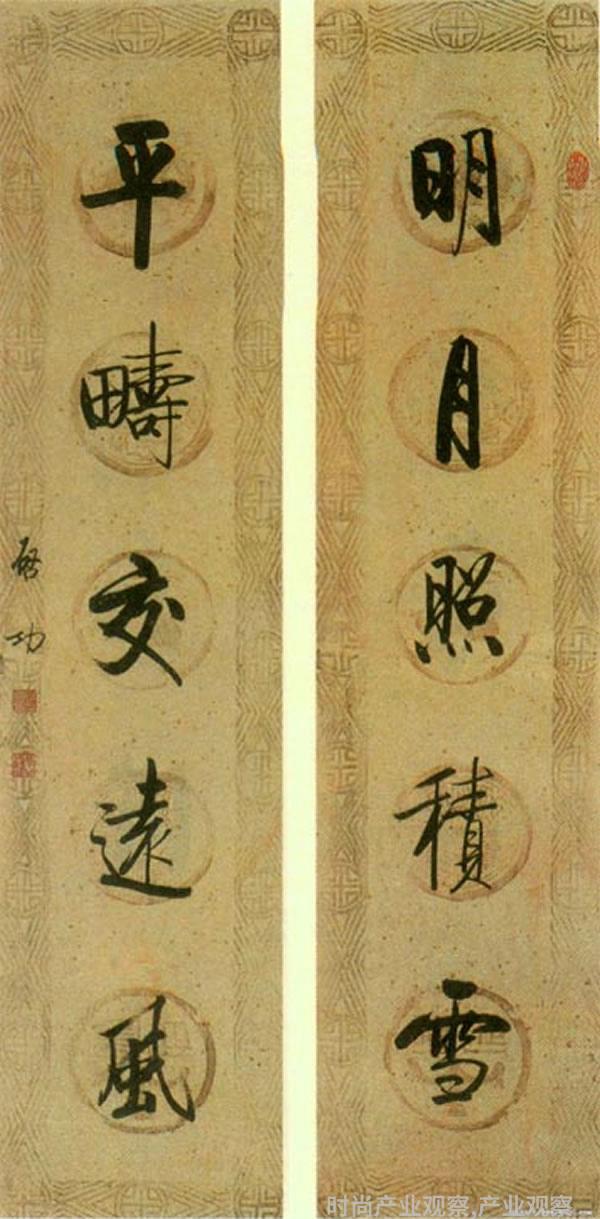 明月照積雪
平疇交遠風
啓功
时尚产业观察,产业观察...